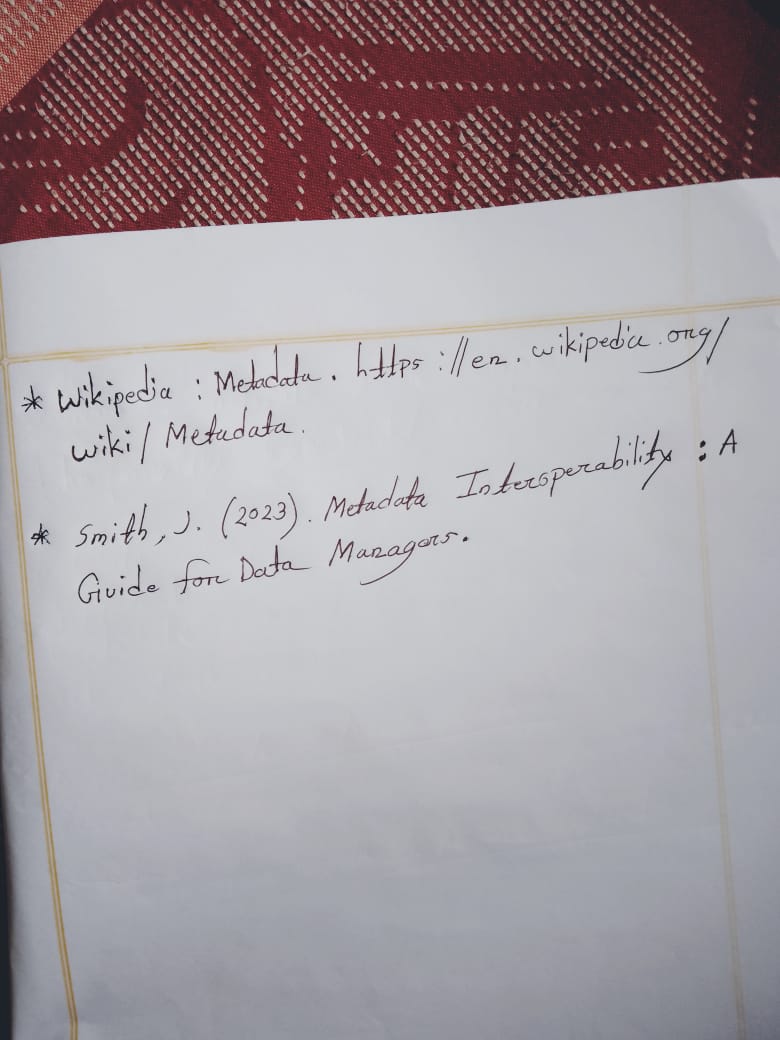 * Wikipedia : Metadata. https://en.wikipedia.org/
wiki/Metadata.
* Smith, J. (2023). Metadata Interoperability : A
Guide for Data Managers.